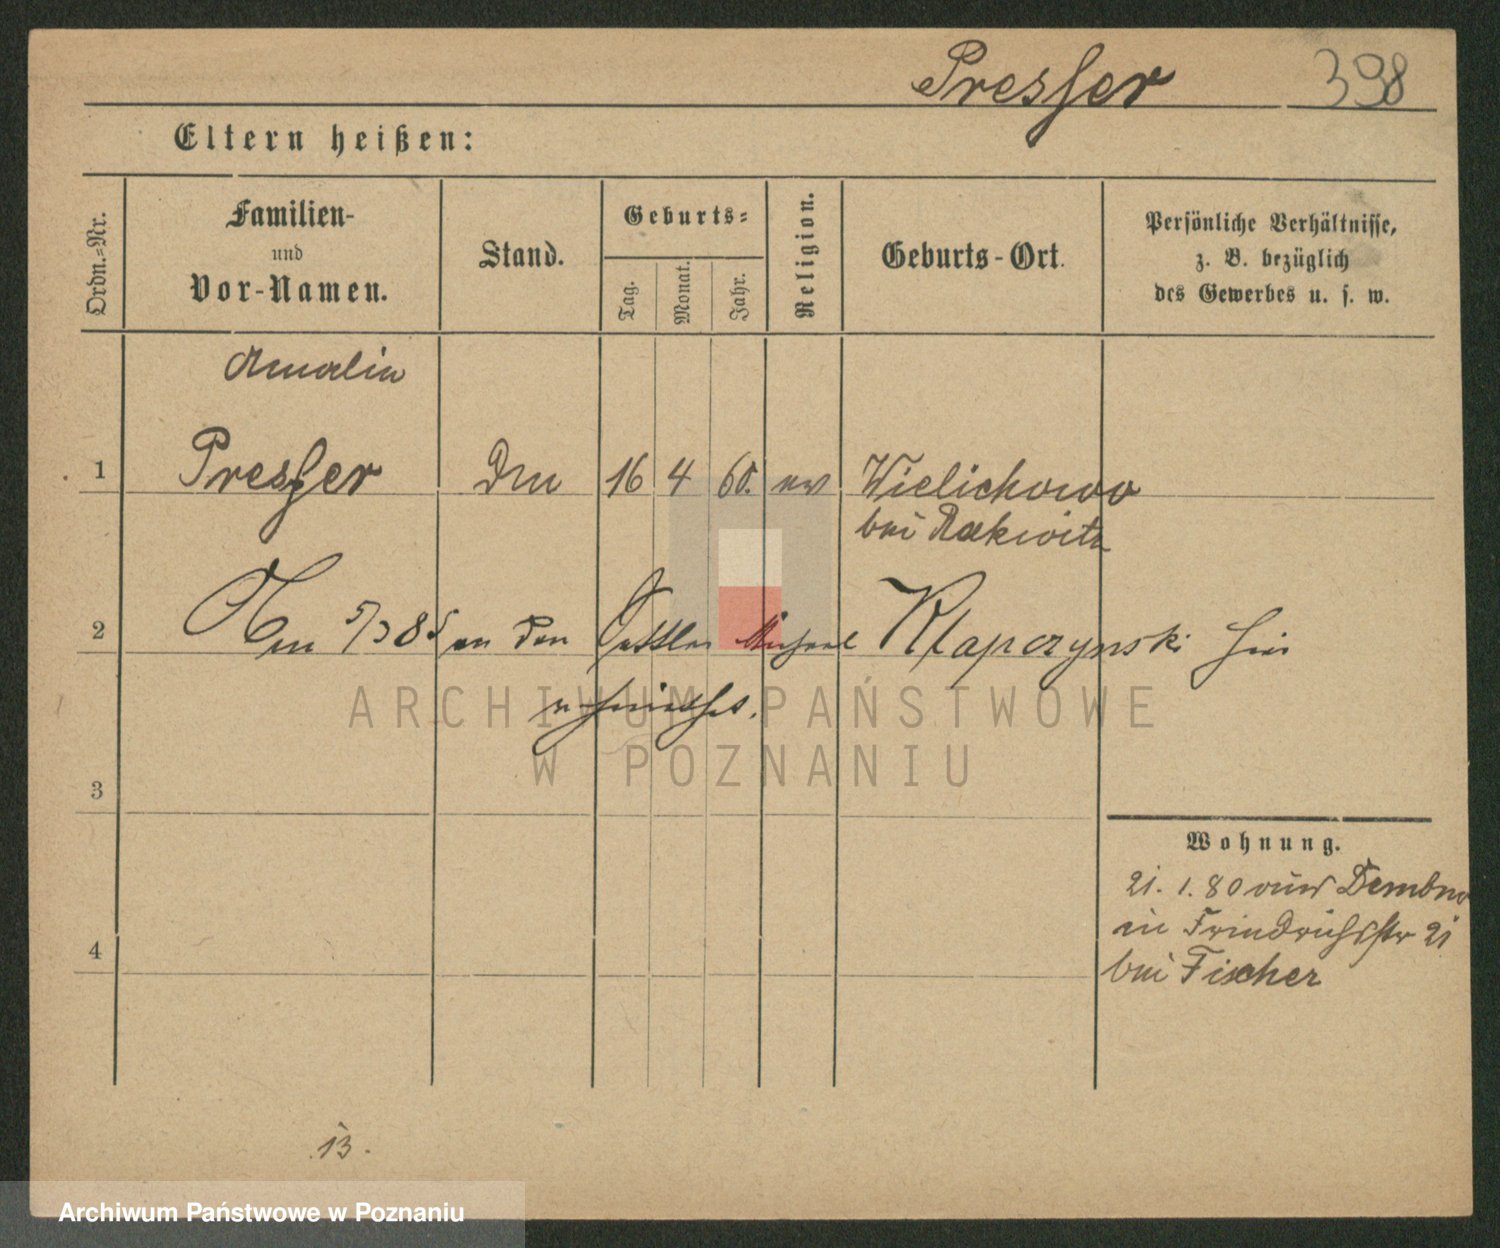 Presser 398
Eltern heißen:
Ordn.-Nr.
Familien-
und
Vor-Namen.
Stand.
Geburts-
Tag.
Monat.
Jahr.
Religion.
Geburts-Ort.
Persönliche Verhältnisse,
z. B. bezüglich
des Gewerbes u. s. w.
Amalie
1 Presser 16 4 60. ev Wielichowo
bei Rakwitz
2 5/3 85 an den Sattler Michael Klapczynski hier
verheirathet.
3
Wohnung.
21. 1. 80 aus Dembno
in Friedrichsstr 21
bei Fischer
4
13.
ARCHIWUM PAŃSTWOWE
W POZNANIU
Archiwum Państwowe w Poznaniu